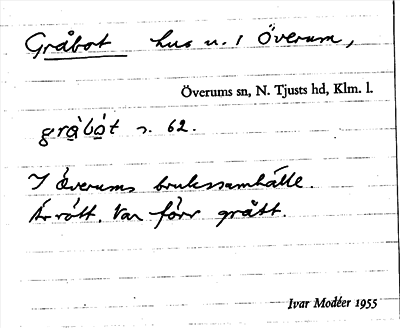 Gråbot hus n. i Överum,
Överums sn, N. Tjusts hd, Klm. l.
gråbót s. 62.
I Överums brukssamhälle.
Är rött. Var förr grått.
Ivar Modéer 1955